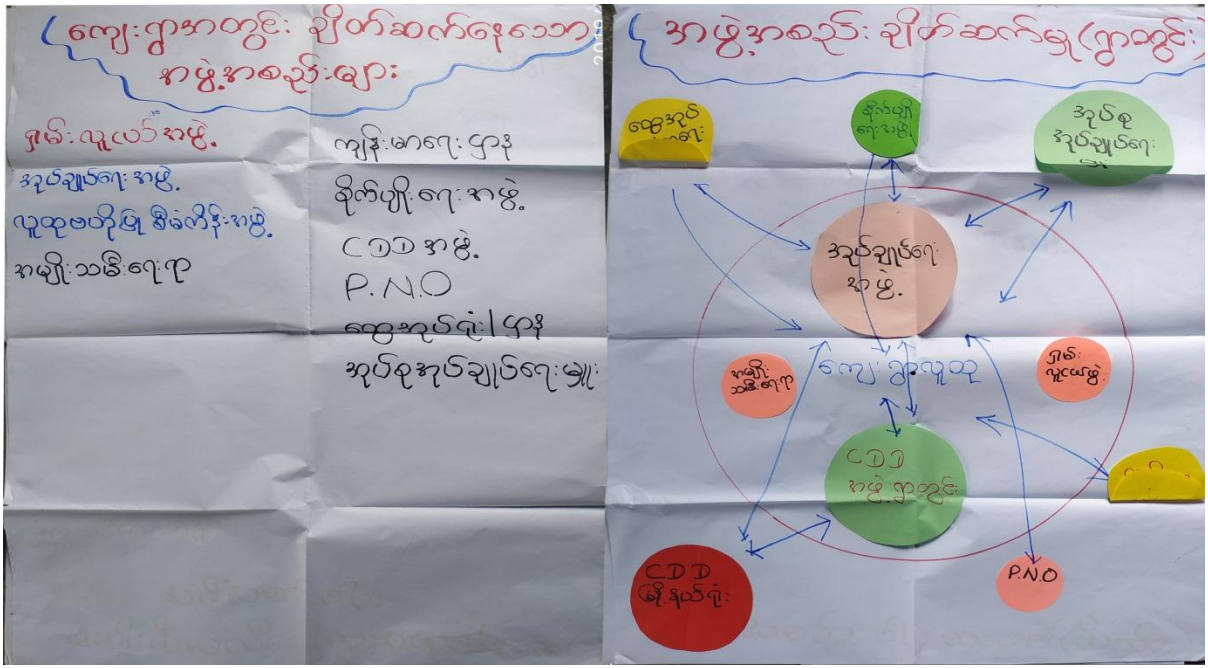 ကျေးရွာအတွင်း ချိတ်ဆက်နေသော
အဖွဲ့အစည်းများ
ရှမ်းလူငယ်အဖွဲ့
အုပ်ချုပ်ရေးအဖွဲ့
လူထုဗဟိုပြု စီမံကိန်းအဖွဲ့
အမျိုးသမီးရေးရာ
ကျန်းမာရေးဌာန
စိုက်ပျိုးရေးအဖွဲ့
CDD အဖွဲ့
P.N.O
ထွေအုပ်ရုံး/ဌာန
အုပ်စုအုပ်ချုပ်ရေးမှူး
အဖွဲ့အစည်းချိတ်ဆက်မှု (ရွာတွင်း)
ထွေအုပ်
စိုက်ပျိုး
ရေးအဖွဲ့
အုပ်စု
အုပ်ချုပ်ရေး
အုပ်ချုပ်ရေး
အဖွဲ့
အမျိုး
သမီးရေးရာ
ကျေးရွာလူထု
ရှမ်း
လူငယ်ဖွဲ့
CDD
အဖွဲ့ရွာတွင်း
CDD
မြို့နယ်ရုံး
P.N.O